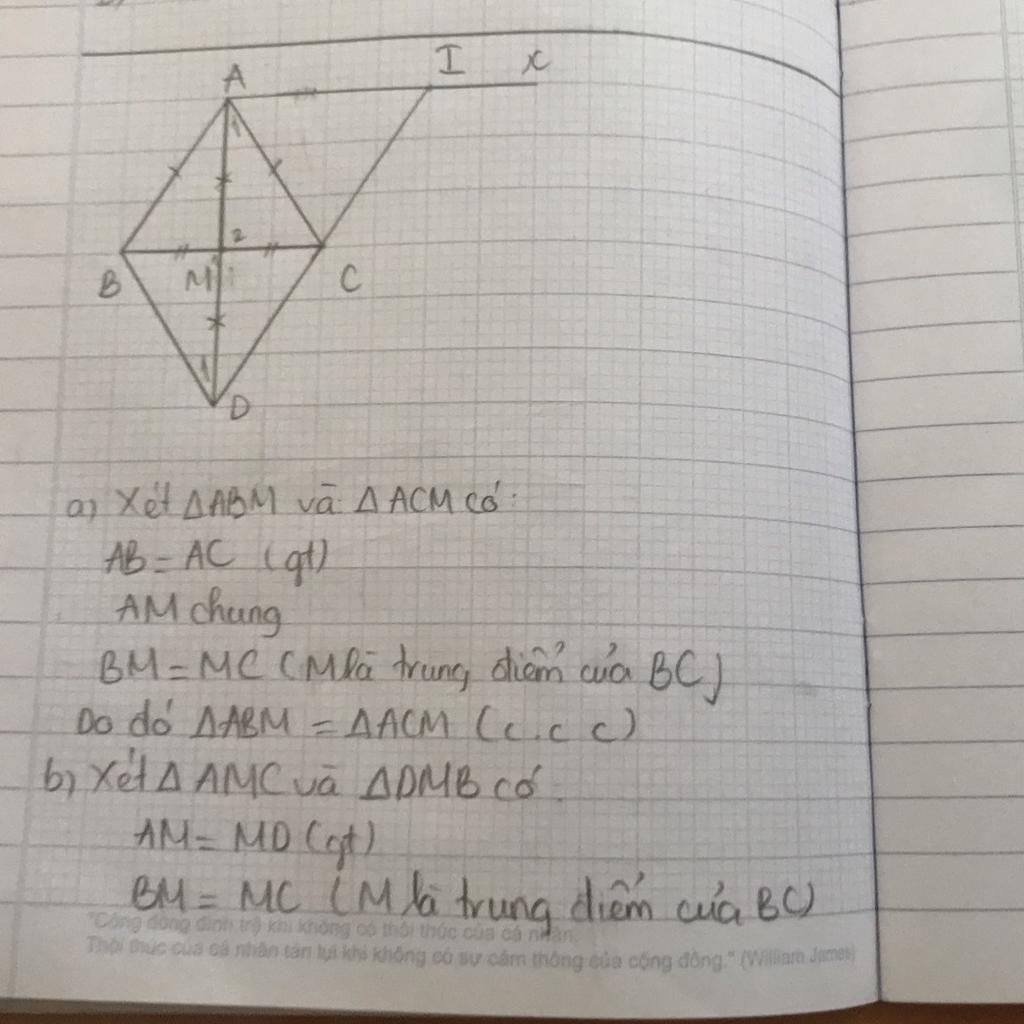 A I x
1
2
B M 1 C
1
D
a) Xét ΔABM và ΔACM có:
AB = AC (gt)
AM chung
BM = MC (M là trung điểm của BC)
Do đó ΔABM = ΔACM (c.c c)
b) Xét Δ AMC và ΔDMB có
AM = MD (gt)
BM = MC (M là trung điểm của BC)
"Cộng đồng đình trệ khi không có thôi thúc của cá nhân.
Thôi thúc của cá nhân tàn lụi khi không có sự cảm thông của cộng đồng." (William James)